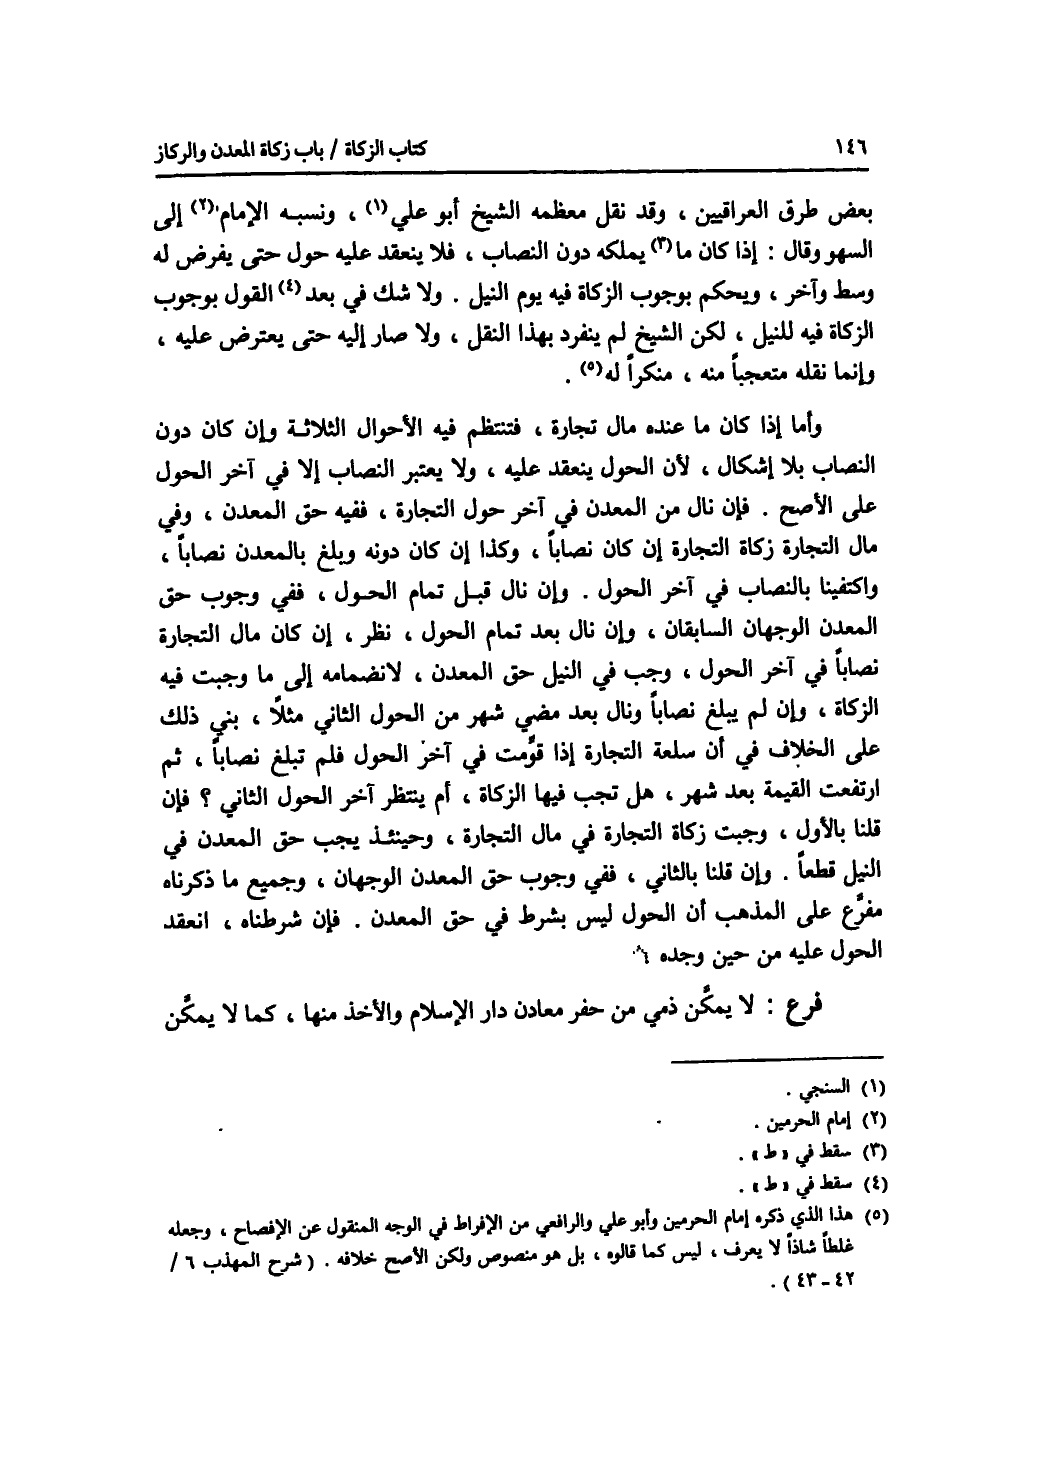 ١٤٦ كتاب الزكاة / باب زكاة المعدن والركاز
بعض طرق العراقيين ، وقد نقل معظمه الشيخ أبو علي(١) ، ونسبه الإمام(٢) إلى
السهو وقال : إذا كان ما(٣) يملكه دون النصاب ، فلا ينعقد عليه حول حتى يفرض له
وسط وآخر ، ويحكم بوجوب الزكاة فيه يوم النيل . ولا شك في بعد(٤) القول بوجوب
الزكاة فيه للنيل ، لكن الشيخ لم ينفرد بهذا النقل ، ولا صار إليه حتى يعترض عليه ،
وإنما نقله متعجباً منه ، منكراً له(٥) .
وأما إذا كان ما عنده مال تجارة ، فتنتظم فيه الأحوال الثلاثة وإن كان دون
النصاب بلا إشكال ، لأن الحول ينعقد عليه ، ولا يعتبر النصاب إلا في آخر الحول
على الأصح . فإن نال من المعدن في آخر حول التجارة ، ففيه حق المعدن ، وفي
مال التجارة زكاة التجارة إن كان نصاباً ، وكذا إن كان دونه وبلغ بالمعدن نصاباً ،
واكتفينا بالنصاب في آخر الحول . وإن نال قبل تمام الحول ، ففي وجوب حق
المعدن الوجهان السابقان ، وإن نال بعد تمام الحول ، نظر ، إن كان مال التجارة
نصاباً في آخر الحول ، وجب في النيل حق المعدن ، لانضمامه إلى ما وجبت فيه
الزكاة ، وإن لم يبلغ نصاباً ونال بعد مضي شهر من الحول الثاني مثلاً ، بني ذلك
على الخلاف في أن سلعة التجارة إذا قوِّمت في آخر الحول فلم تبلغ نصاباً ، ثم
ارتفعت القيمة بعد شهر ، هل تجب فيها الزكاة ، أم ينتظر آخر الحول الثاني ؟ فإن
قلنا بالأول ، وجبت زكاة التجارة في مال التجارة ، وحينئذ يجب حق المعدن في
النيل قطعاً . وإن قلنا بالثاني ، ففي وجوب حق المعدن الوجهان ، وجميع ما ذكرناه
مفرَّع على المذهب أن الحول ليس بشرط في حق المعدن . فإن شرطناه ، انعقد
الحول عليه من حين وجده
فرع : لا يمكَّن ذمي من حفر معادن دار الإسلام والأخذ منها ، كما لا يمكَّن
(١) السنجي .
(٢) إمام الحرمين .
(٣) سقط في « ط » .
(٤) سقط في « ط » .
(٥) هذا الذي ذكره إمام الحرمين وأبو علي والرافعي من الإفراط في الوجه المنقول عن الإفصاح ، وجعله
غلطاً شاذاً لا يعرف ، ليس كما قالوه ، بل هو منصوص ولكن الأصح خلافه . ( شرح المهذب ٦ /
٤٢ - ٤٣ ) .